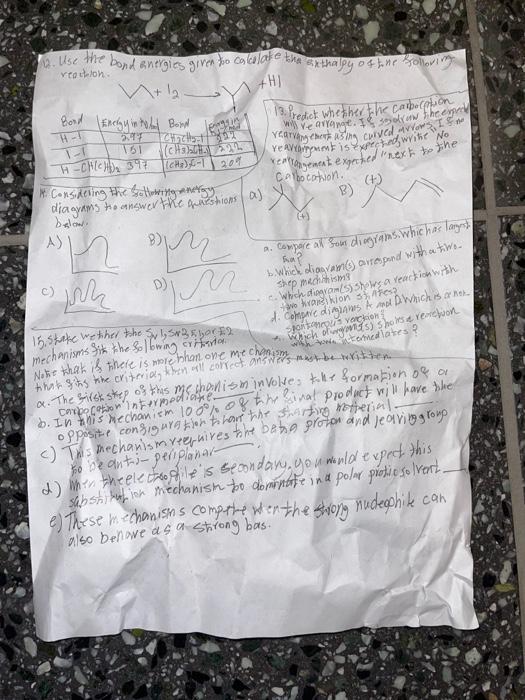 12. Use the bond energies given to calculate the enthalpy of the following
reaction.
+ I2 → + HI
Bond Energy in kJ/mol Bond
H-I 297
I-I 151
H-CH(CH3)2 397 209
13. Predict whether the carbocation
will rearrange. If so, draw the expected
rearrangement using curved arrows. If no
rearrangement is expected, write "No
rearrangement expected" next to the
carbocation.
a) B) (+)
(+)
14. Considering the following energy
diagrams to answer the questions
below.
A) B)
C) D)
a. Compare all four diagrams. Which has largest
b. Which diagram(s) correspond with a two-
step mechanism?
c. Which diagram(s) shows a reaction with
two transition states?
d. Compare diagrams A and D. Which is a non-
spontaneous reaction?
e. Which diagram(s) shows a reaction
with intermediates?
15. State whether the SN1, SN2, E1, or E2
mechanisms fit the following criteria.
Note that if there is more than one mechanism
that fits the criteria, then all correct answers must be written
a. The first step of this mechanism involves the formation of a
carbocation intermediate
b. In this mechanism 100% of the final product will have the
opposite configuration than the starting material
c) This mechanism requires the beta proton and leaving group
to be anti-periplanar
d) When the electrophile is secondary, you would expect this
substitution mechanism to dominate in a polar protic solvent.
e) These mechanisms compete when the strong nucleophile can
also behave as a strong bas.